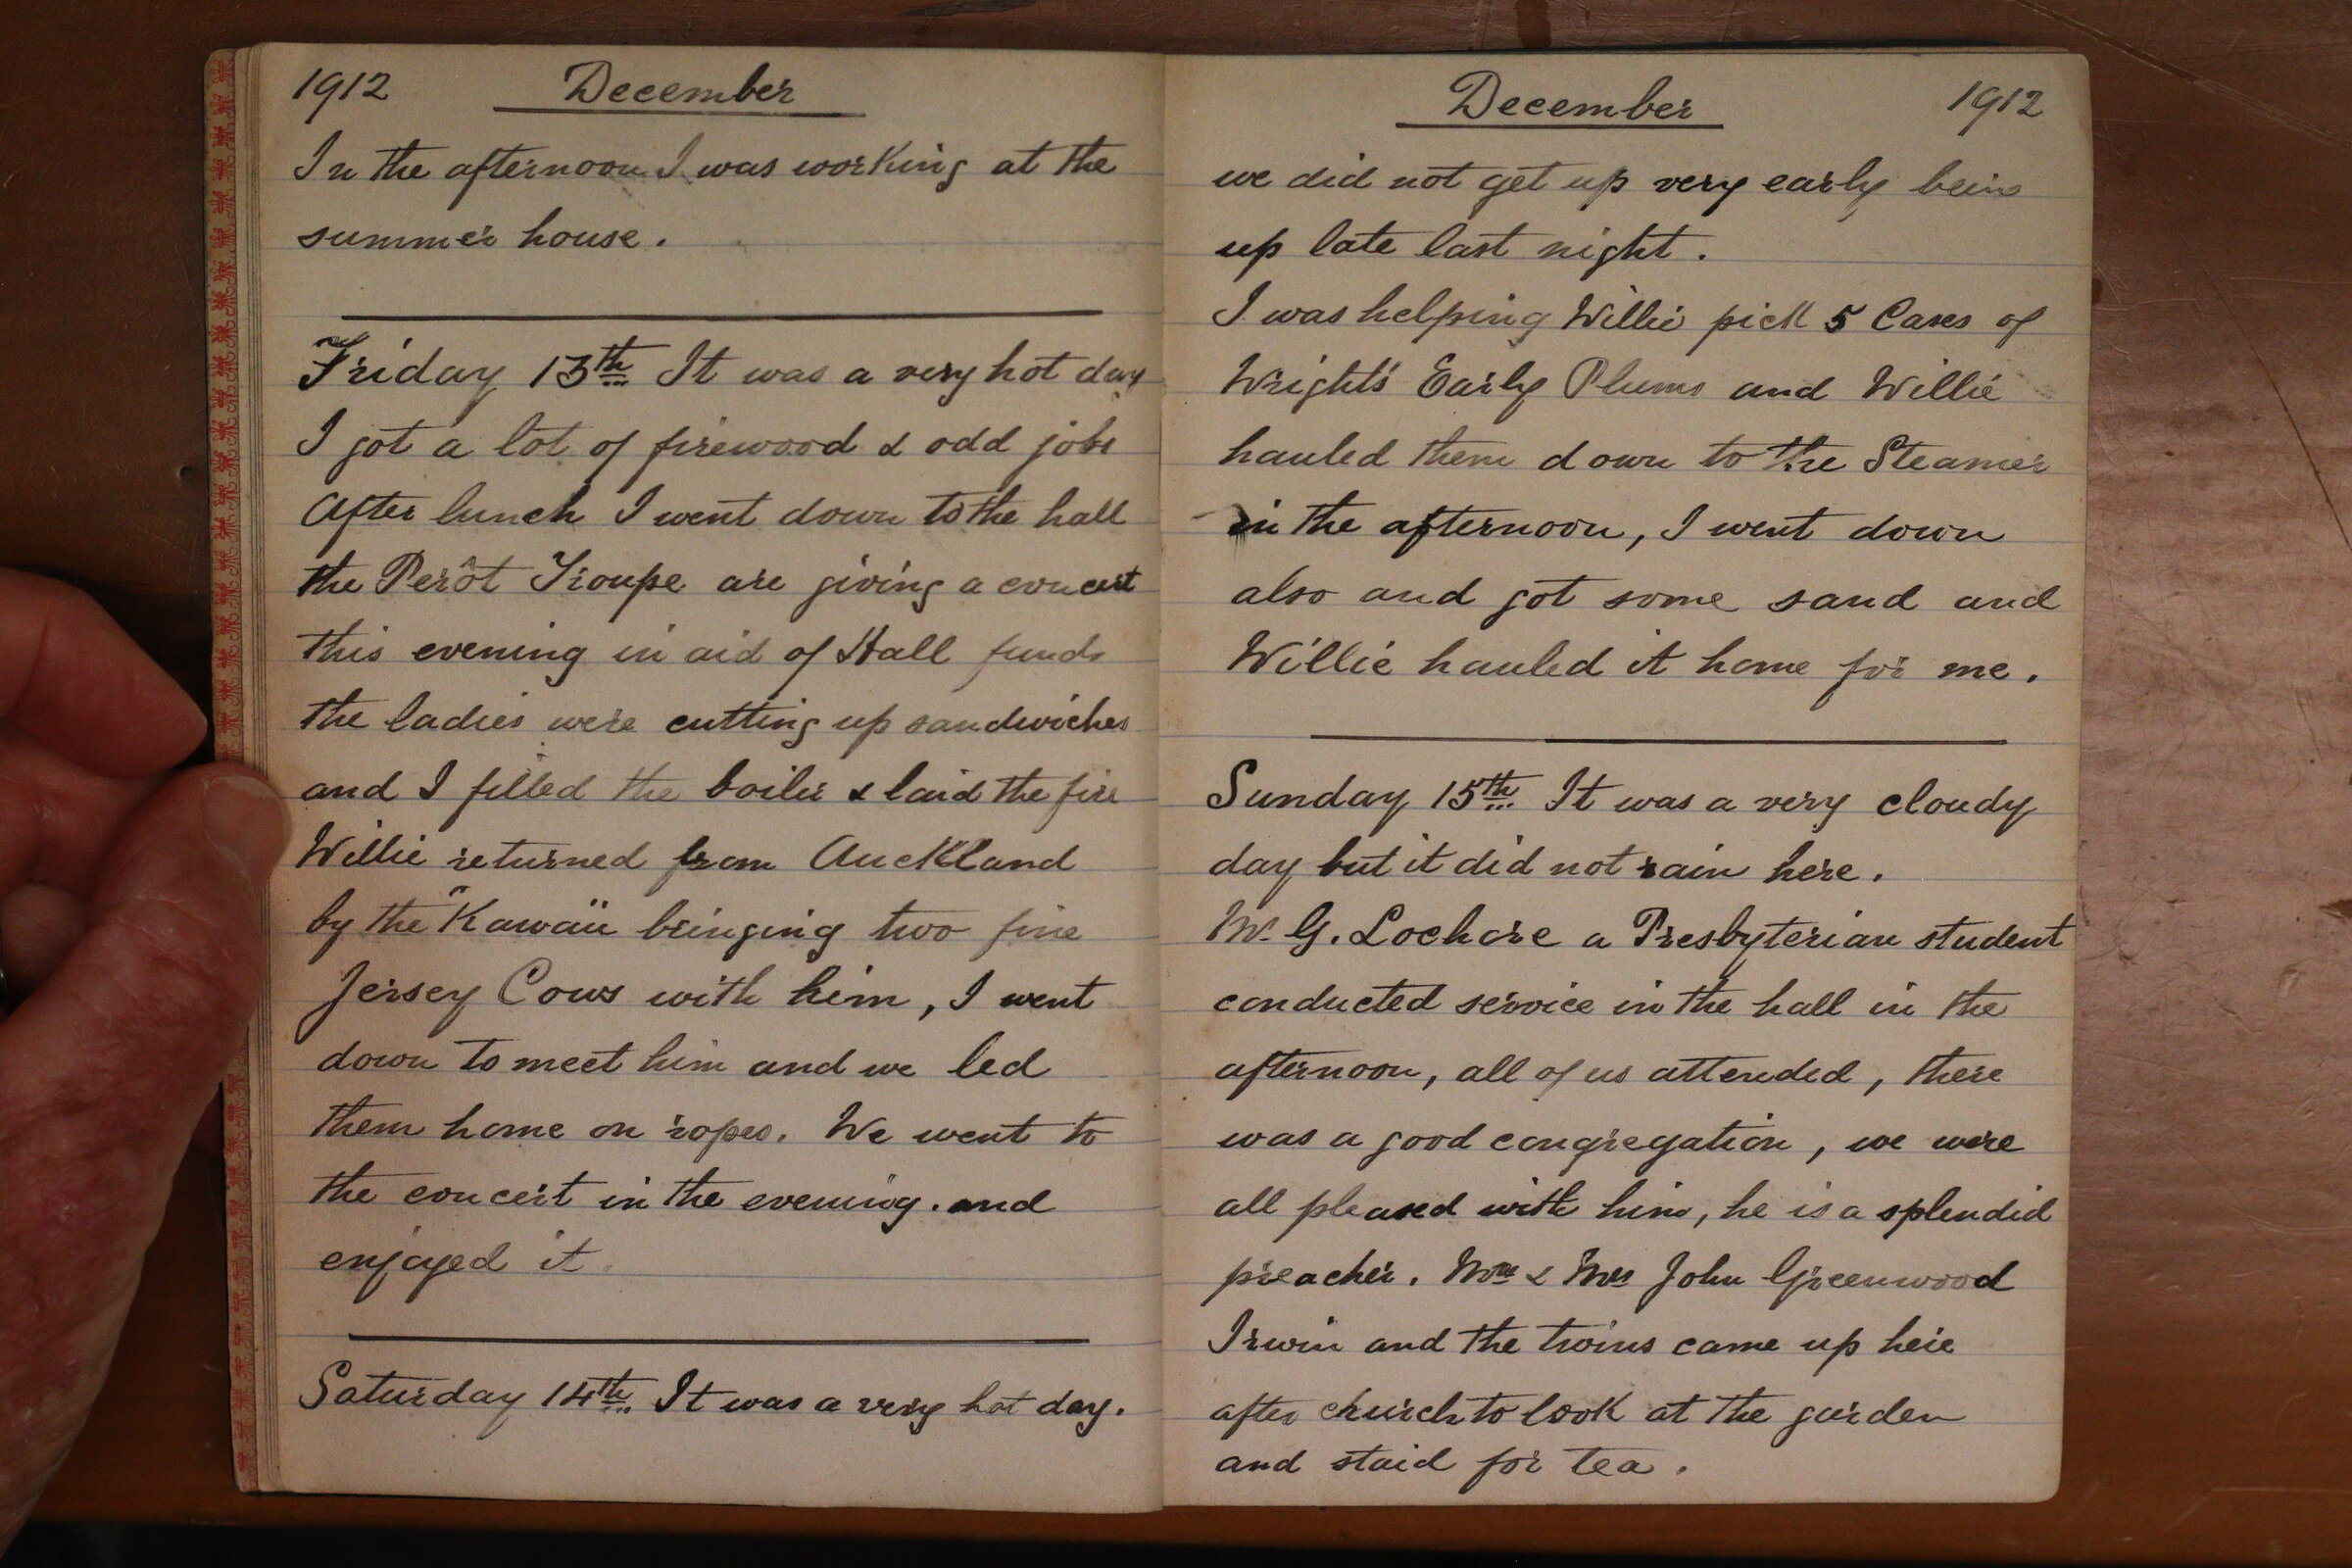 1912 December
In the afternoon I was working at the
summer house.
Friday 13th It was a very hot day
I got a lot of firewood & odd jobs
After lunch I went down to the hall
the Perôt Troupe are giving a concert
this evening in aid of Hall funds
the ladies were cutting up sandwiches
and I filled the boiler & laid the fire
Willie returned from Auckland
by the "Kawau" bringing two fine
Jersey Cows with him, I went
down to meet him and we led
them home on ropes. We went to
the concert in the evening. and
enjoyed it.
Saturday 14th It was a very hot day.
December 1912
we did not get up very early being
up late last night.
I was helping Willie pick 5 Cases of
Wright's Early Plums and Willie
hauled them down to the Steamer
in the afternoon, I went down
also and got some sand and
Willie hauled it home for me.
Sunday 15th It was a very cloudy
day but it did not rain here.
G. a Presbyterian student
conducted service in the hall in the
afternoon, all of us attended, there
was a good congregation, we were
all pleased with him, he is a splendid
preacher. & Mrs John Greenwood
Irwin and the twins came up here
after church to look at the garden
and staid for tea.